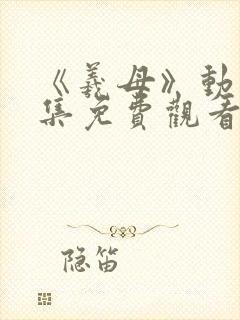 《義母》動
集免費觀看
隐笛